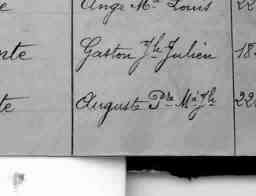 e Ange Mie Louis 22
nte Gaston Jh Julien 18
te Auguste Pre Mie Jh 22